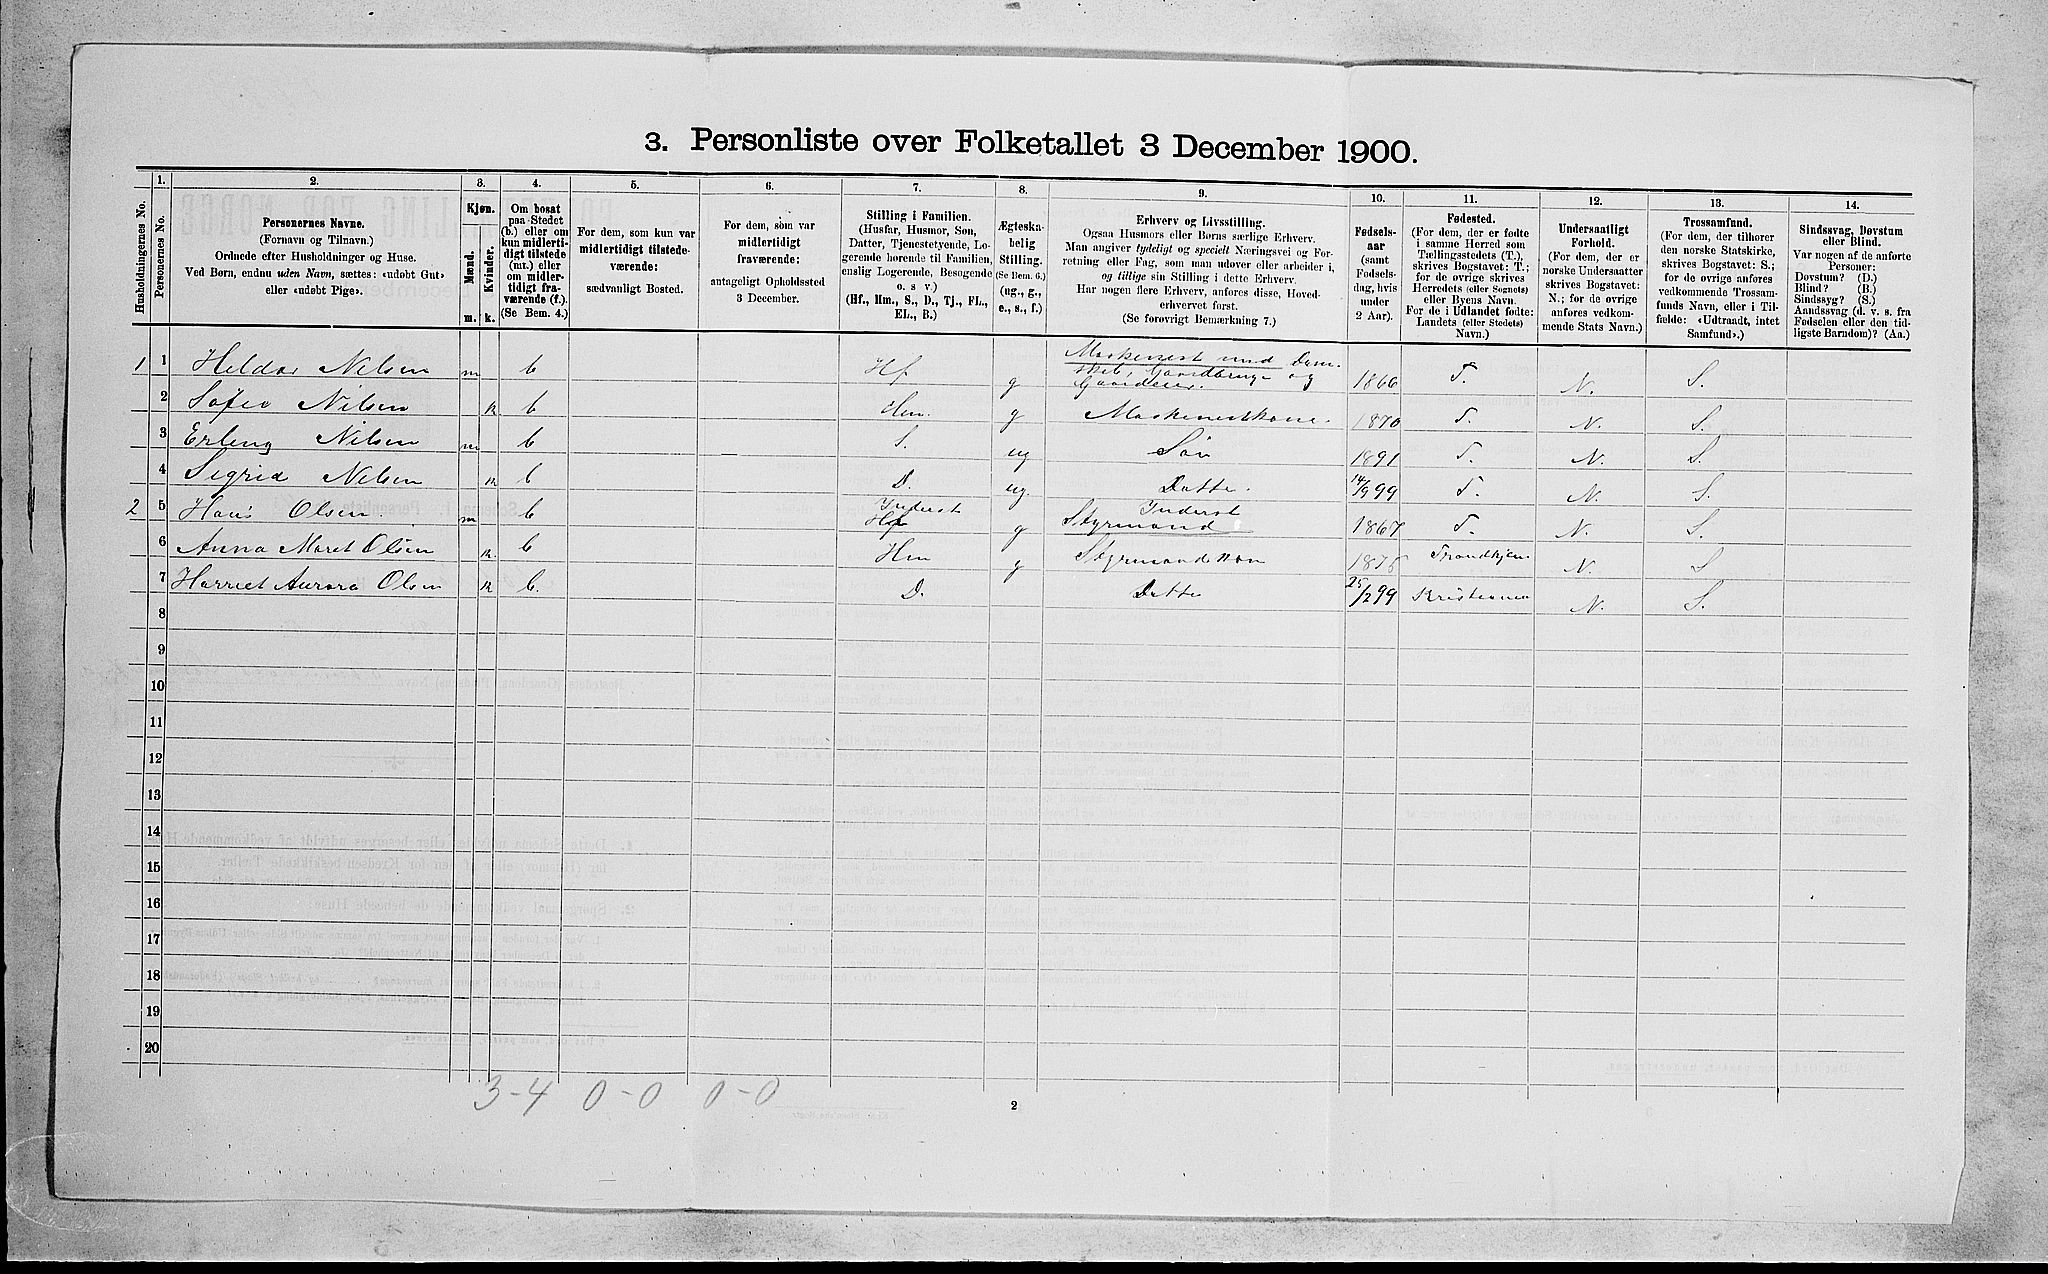 3. Personliste over Folketallet 3 December 1900.
Husholdningernes No.
1. Personernes No.
2. Personernes Navne.
(Fornavn og Tilnavn.)
Ordnede efter Husholdninger og Huse.
Ved Børn, endnu uden Navn, sættes: «udøbt Gut»
eller «udøbt Pige».
3. Kjøn.
Mænd. m.
Kvinder. k.
4. Om bosat
paa Stedet
(b.) eller om
kun midlerti-
digt tilstede
(mt.) eller
om midler-
tidigt fra-
værende (f.).
(Se Bem. 4.)
5. For dem, som kun var
midlertidigt tilstede-
værende:
sædvanligt Bosted.
6. For dem, som var
midlertidigt
fraværende:
antageligt Opholdssted
3 December.
7. Stilling i Familien.
(Husfar, Husmor, Søn,
Datter, Tjenestetyende, Lo-
gerende hørende til Familien,
enslig Logerende, Besøgende
o. s v.)
(Hf., Hm., S., D., Tj., FL.,
EL., B.)
8. Ægteska-
belig
Stilling.
(Se Bem. 6.)
(ug., g.,
e., s., f.)
9. Erhverv og Livsstilling.
Ogsaa Husmors eller Børns særlige Erhverv.
Man angiver tydeligt og specielt Næringsvei og For-
retning eller Fag, som man udøver eller arbeider i,
og tillige sin Stilling i dette Erhverv.
Har nogen flere Erhverv, anføres disse, Hoved-
erhvervet først.
(Se forøvrigt Bemærkning 7.)
10. Fødsels-
aar
(samt
Fødsels-
dag, hvis
under
2 Aar).
11. Fødested.
(For dem, der er fødte
i samme Herred som
Tællingsstedets (T.),
skrives Bogstavet: T.;
for de øvrige skrives
Herredets (eller Sognets)
eller Byens Navn.
For de i Udlandet fødte:
Landets (eller Stedets)
Navn.)
12. Undersaatligt
Forhold.
(For dem, der er
norske Undersaatter
skrives Bogstavet:
N.; for de øvrige
anføres vedkom-
mende Stats Navn.)
13. Trossamfund.
(For dem, der tilhører
den norske Statskirke,
skrives Bogstavet: S.;
for de øvrige anføres
vedkommende Trossam-
funds Navn, eller i Til-
fælde: «Udtraadt, intet
Samfund».)
14. Sindssvag, Døvstum
eller Blind.
Var nogen af de anførte
Personer:
Døvstum? (D.)
Blind? (B.)
Sindssyg? (S.)
Aandssvag (d. v. s. fra
Fødselen eller den tid-
ligste Barndom)? (Aa.)
1 1 Heldar Nelsen m b Hf g Maskenest med Dam-
skib, Gaardbruge og
Gaardeier. 1866 T. N. S.
2 Sofie Nilsen k b Hm. g Maskenestkone. 1870 T. N. S.
3 Erling Nilsen m b S. ug Søn 1891 T. N. S.
4 Sigrid Nelsen k b D. ug. Datte. 14/9 99 T. N. S.
2 5 Hans Olsen m b Inderst Hf g Inderst
Styrmand 1867 T. N. S.
6 Anna Maret Olsen k. b Hm g Styrmandskon 1875 Trondhjem N. S
7 Harriet Aurora Olsen k b. D. Datte 25/2 99 Kristiania N. S.
8
9
10
11
12
13
14
15
16
17
18
19
20
3-4 0-0 0-0
2